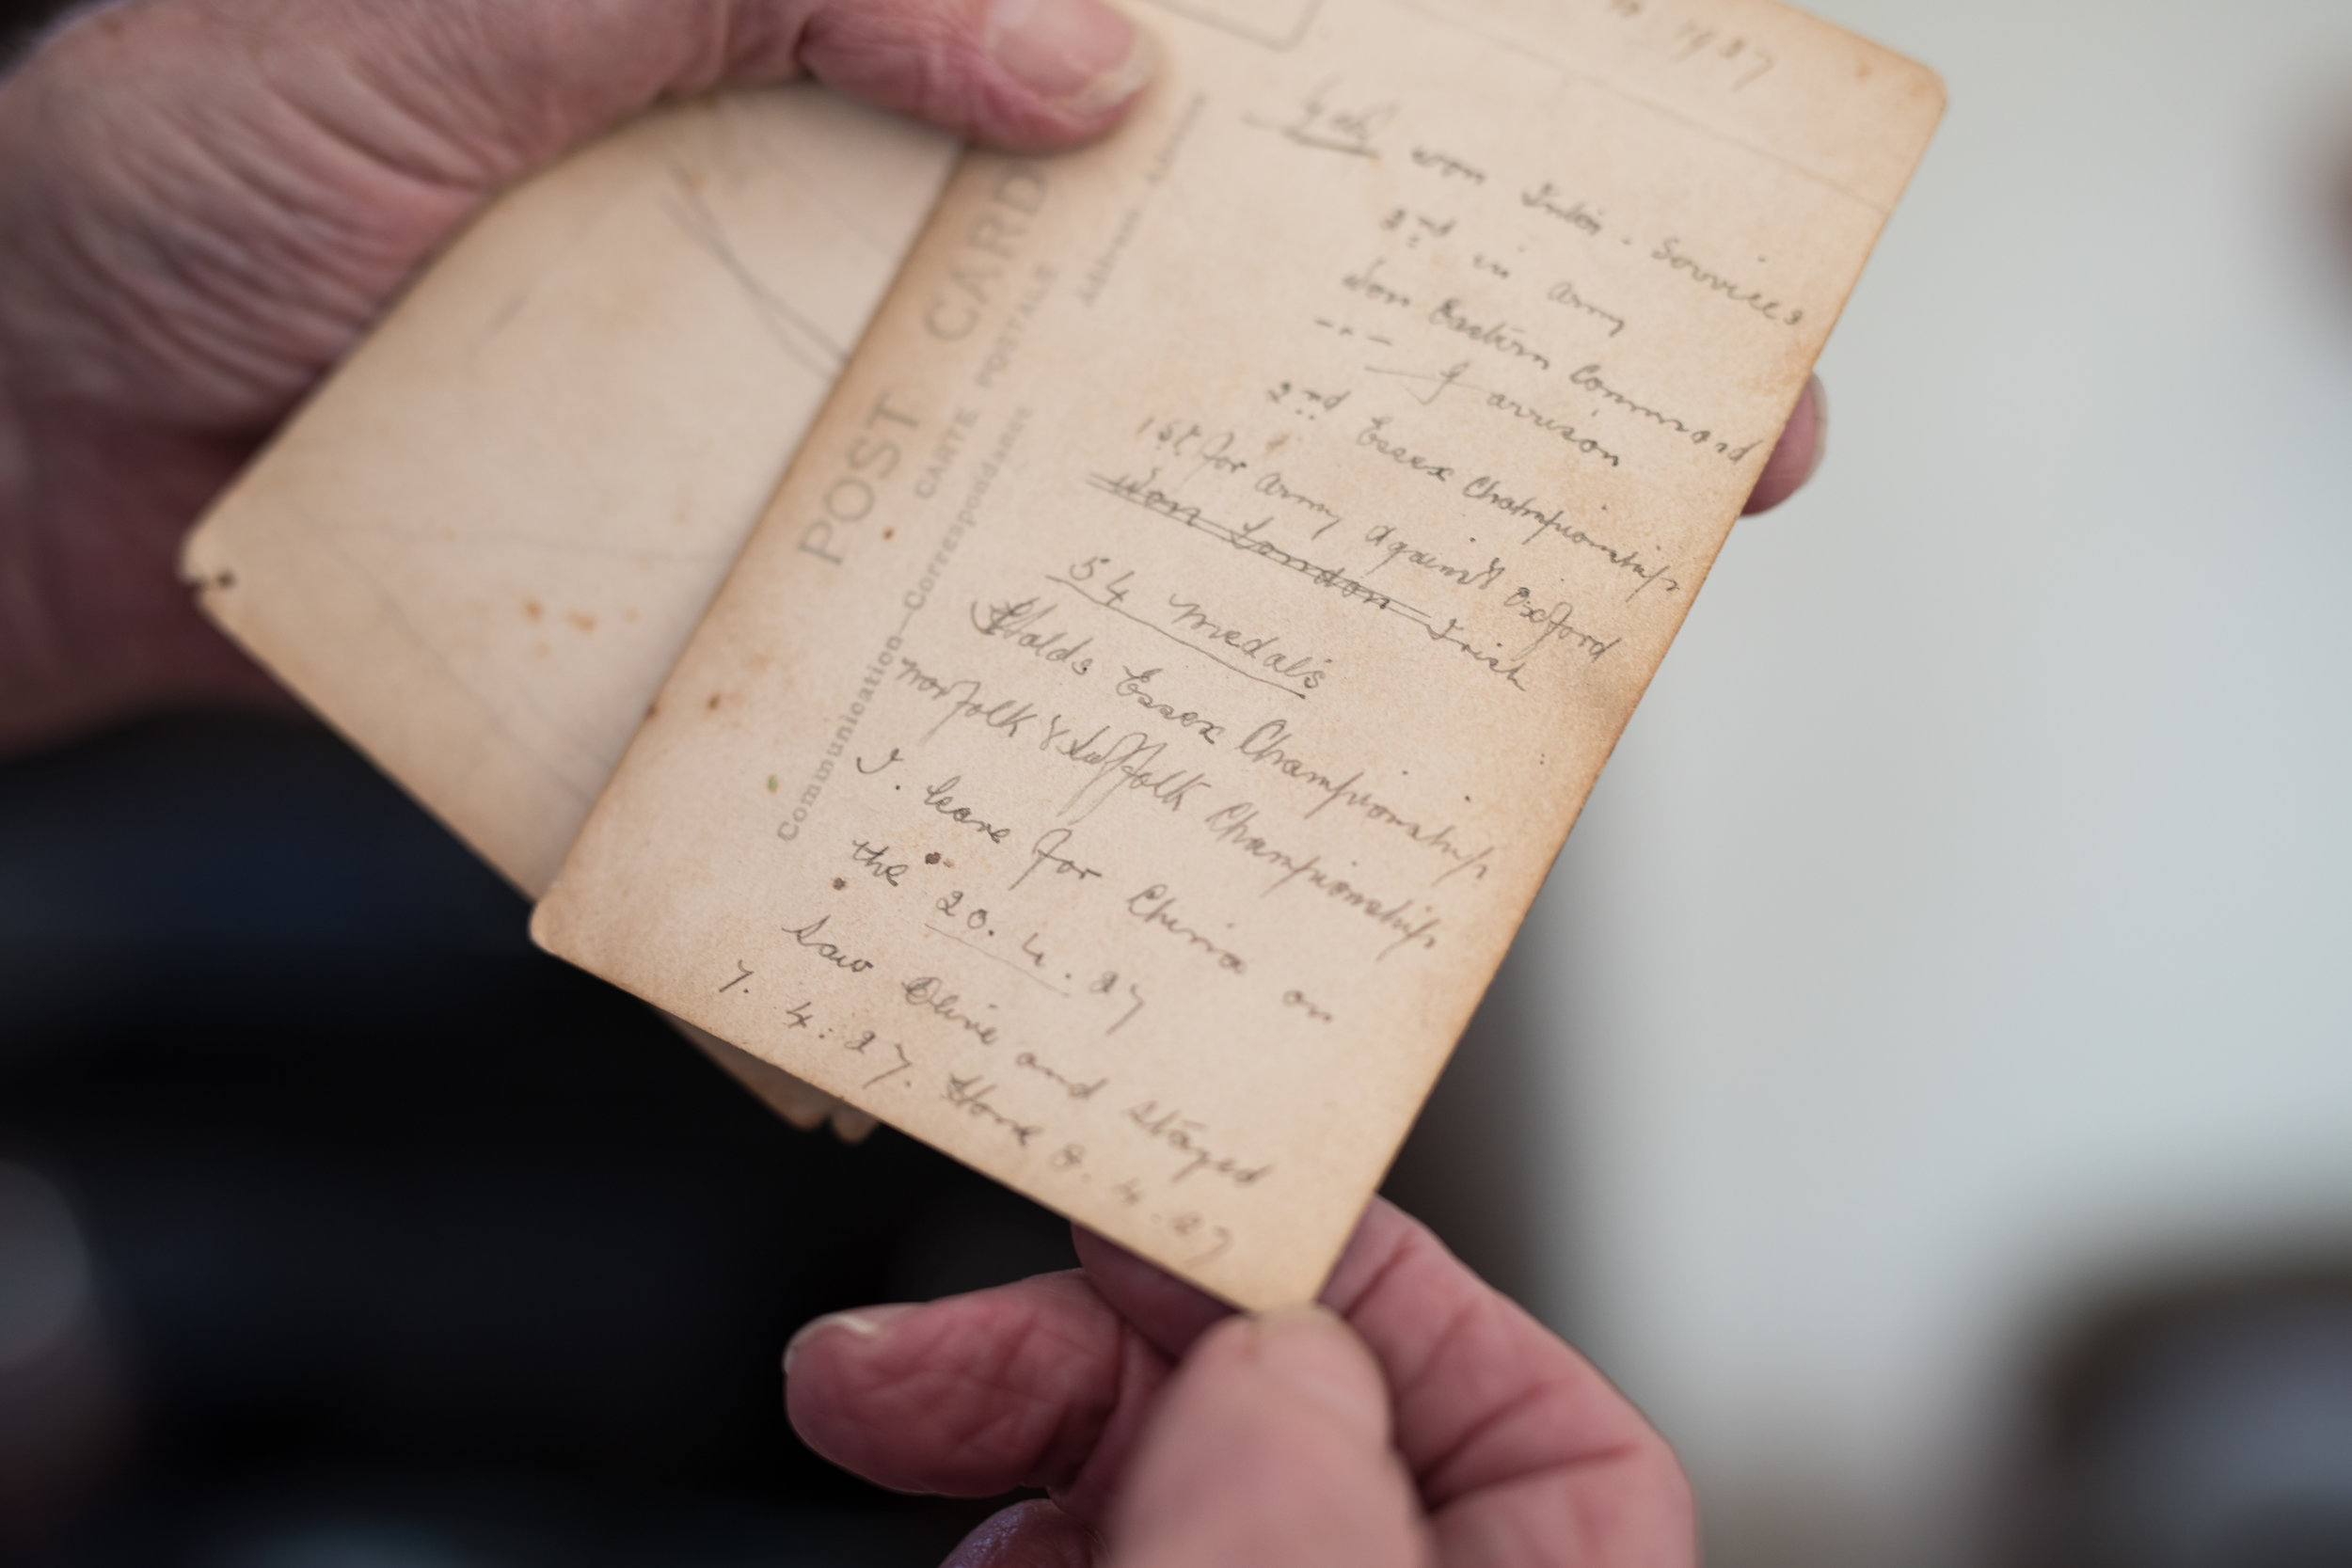 1927
won Inter. Services
2nd in Army
Won Eastern Command
-"- Garrison
2nd Essex Championship
1st for Army Against Oxford
Won London Irish
54 Medals
Holds Essex Championship
Norfolk & Suffolk Championship
I. leave for China on
the 20. 4. 27
Saw Olive and stayed
7. 4: 27. Home 8. 4. 27
POST CARD
CARTE POSTALE
Communication—Correspondance
Address - Adresse